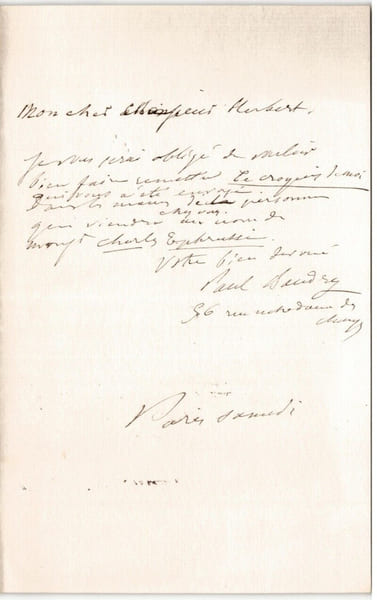 Mon cher Monsieur Herbert,
Je vous serai obligé de vouloir
bien faire remettre le croquis de moi
qui vous a été envoyé
dans les mains de la personne
qui viendra chez vous au nom de
mons Charles Ephrussi.
Votre bien dévoué
Paul Baudry
56 rue notre dame des
champs
Paris samedi